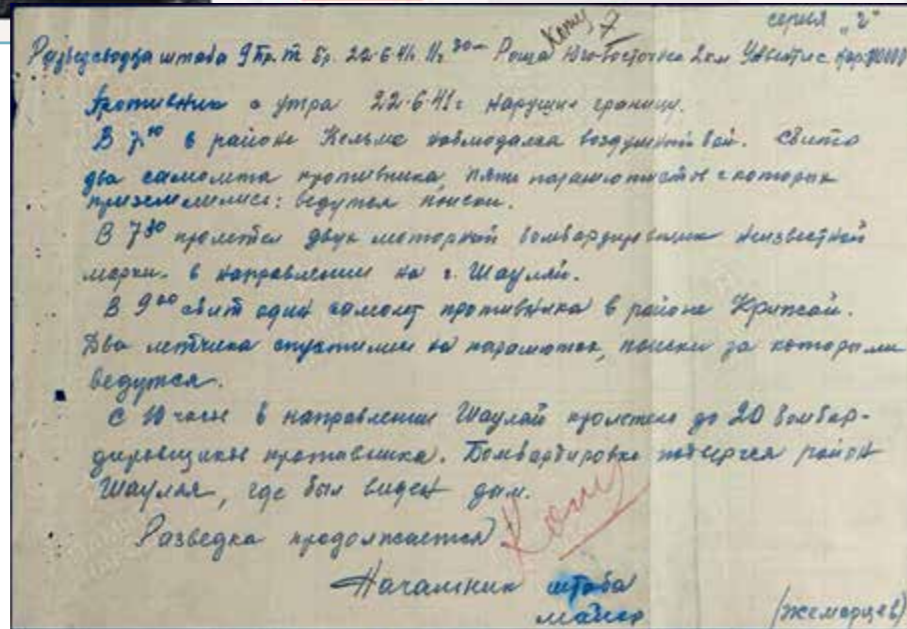 серия „г"
Кому 7
Разведсводка штаба 9 пр. т бр. 22.6.41 11ч 30м Роща Юго-Восточнее 2 км
Противник с утра 22.6.41г нарушил границу.
В 7 10 в районе Кельме наблюдался воздушный бой. сбито
два самолета противника, пять парашютистов с которых
приземлились: ведутся поиски.
В 7 30 пролетел двух моторный бомбардировщик неизвестной
марки. в направлении на г. Шауляй.
В 9 00 сбит один самолет противника в районе
Два летчика спустились на парашютах, поиски за которыми
ведутся.
С 10 часов в направлении Шауляй пролетело до 20 бомбар-
дировщиков противника. Бомбардировке подвергся район
Шауляя, где был виден дым.
Разведка продолжается
Кому
Начальник штаба
майор /Жемарцев/